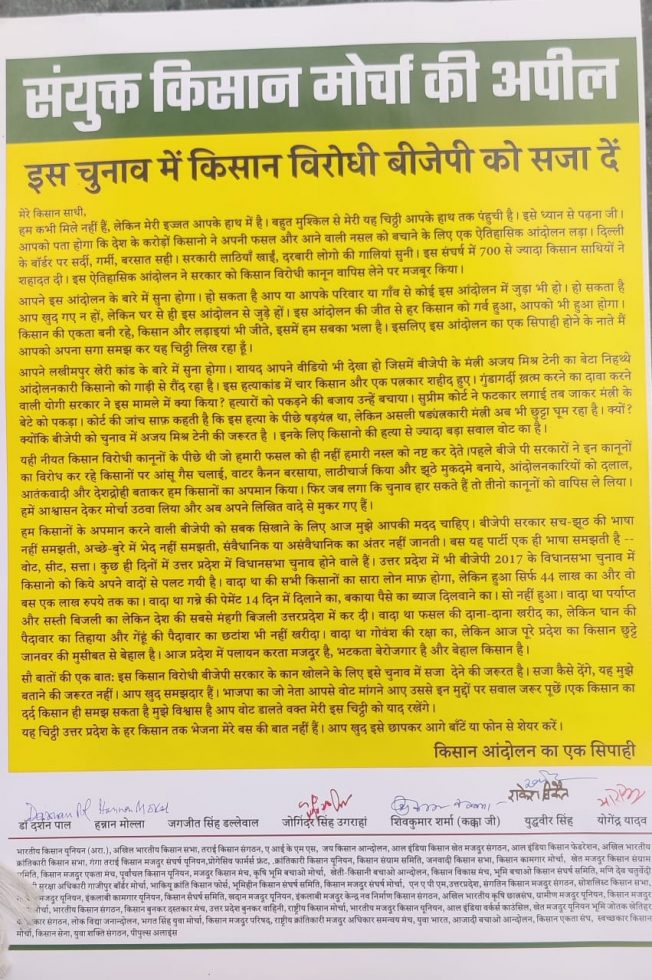 संयुक्त किसान मोर्चा की अपील
इस चुनाव में किसान विरोधी बीजेपी को सजा दें
मेरे किसान साथी,
हम कभी मिले नहीं हैं, लेकिन मेरी इज्जत आपके हाथ में है। बहुत मुश्किल से मेरी यह चिट्ठी आपके हाथ तक पहुंची है। इसे ध्यान से पढ़ना जी।
आपको पता होगा कि देश के करोड़ों किसानो ने अपनी फसल और आने वाली नसल को बचाने के लिए एक ऐतिहासिक आन्दोलन लड़ा। दिल्ली
के बॉर्डर पर सर्दी, गर्मी, बरसात सही। सरकारी लाठियाँ खाईं, दरबारी लोगो की गालियां सुनी। इस संघर्ष में 700 से ज्यादा किसान साथियों ने
शहादत दी। इस ऐतिहासिक आंदोलन ने सरकार को किसान विरोधी कानून वापिस लेने पर मजबूर किया।
आपने इस आंदोलन के बारे में सुना होगा। हो सकता है आप या आपके परिवार या गाँव से कोई इस आन्दोलन में जुड़ा भी हो। हो सकता है
आप खुद गए न हों, लेकिन घर से ही इस आन्दोलन से जुड़े हों। इस आंदोलन की जीत से हर किसान को गर्व हुआ, आपको भी हुआ होगा।
किसान की एकता बनी रहे, किसान और लड़ाइयां भी जीते, इसमें हम सबका भला है। इसलिए इस आंदोलन का एक सिपाही होने के नाते मैं
आपको अपना सगा समझ कर यह चिट्ठी लिख रहा हूँ।
आपने लखीमपुर खेरी कांड के बारे में सुना होगा। शायद आपने वीडियो भी देखा हो जिसमें बीजेपी के मंत्री अजय मिश्र टेनी का बेटा निहत्थे
आंदोलनकारी किसानो को गाड़ी से रौंद रहा है। इस हत्याकांड में चार किसान और एक पत्रकार शहीद हुए। गुंडागर्दी ख़त्म करने का दावा करने
वाली योगी सरकार ने इस मामले में क्या किया? हत्यारों को पकड़ने की बजाय उन्हें बचाया। सुप्रीम कोर्ट ने फटकार लगाई तब जाकर मंत्री के
बेटे को पकड़ा। कोर्ट की जांच साफ़ कहती है कि इस हत्या के पीछे षड़यंत्र था, लेकिन असली षड्यंत्रकारी मंत्री अब भी छुट्टा घूम रहा है। क्यों?
क्योंकि बीजेपी को चुनाव में अजय मिश्र टेनी की जरूरत है । इनके लिए किसानो की हत्या से ज्यादा बड़ा सवाल वोट का है।
यही नीयत किसान विरोधी कानूनों के पीछे थी जो हमारी फसल को ही नहीं हमारी नस्ल को नष्ट कर देते।पहले बीजे पी सरकारों ने इन कानूनों
का विरोध कर रहे किसानों पर आंसू गैस चलाई, वाटर कैनन बरसाया, लाठीचार्ज किया और झूठे मुकदमे बनाये, आंदोलनकारियों को दलाल,
आतंकवादी और देशद्रोही बताकर हम किसानों का अपमान किया। फिर जब लगा कि चुनाव हार सकते हैं तो तीनो कानूनों को वापिस ले लिया।
हमें आश्वासन देकर मोर्चा उठवा लिया और अब अपने लिखित वादे से मुकर गए हैं।
हम किसानों के अपमान करने वाली बीजेपी को सबक सिखाने के लिए आज मुझे आपकी मदद चाहिए। बीजेपी सरकार सच-झूठ की भाषा
नहीं समझती, अच्छे-बुरे में भेद नहीं समझती, संवैधानिक या असंवैधानिक का अंतर नहीं जानती। बस यह पार्टी एक ही भाषा समझती है --
वोट, सीट, सत्ता। कुछ ही दिनों में उत्तर प्रदेश में विधानसभा चुनाव होने वाले हैं। उत्तर प्रदेश में भी बीजेपी 2017 के विधानसभा चुनाव में
किसानो को किये अपने वादों से पलट गयी है। वादा था की सभी किसानों का सारा लोन माफ़ होगा, लेकिन हुआ सिर्फ 44 लाख का और वो
बस एक लाख रुपये तक का। वादा था गन्ने की पेमेंट 14 दिन में दिलाने का, बकाया पैसे का ब्याज दिलवाने का। सो नहीं हुआ। वादा था पर्याप्त
और सस्ती बिजली का लेकिन देश की सबसे मंहगी बिजली उत्तरप्रदेश में कर दी। वादा था फसल की दाना-दाना खरीद का, लेकिन धान की
पैदावार का तिहाया और गेंहूं की पैदावार का छटांश भी नहीं खरीदा। वादा था गोवंश की रक्षा का, लेकिन आज पूरे प्रदेश का किसान छुट्टे
जानवर की मुसीबत से बेहाल है। आज प्रदेश में पलायन करता मजदूर है, भटकता बेरोजगार है और बेहाल किसान है।
सौ बातों की एक बात: इस किसान विरोधी बीजेपी सरकार के कान खोलने के लिए इसे चुनाव में सजा देने की जरूरत है। सजा कैसे देंगे, यह मुझे
बताने की जरूरत नहीं। आप खुद समझदार हैं। भाजपा का जो नेता आपसे वोट मांगने आए उससे इन मुद्दों पर सवाल जरूर पूछें।एक किसान का
दर्द किसान ही समझ सकता है मुझे विश्वास है आप वोट डालते वक्त मेरी इस चिट्ठी को याद रखेंगे।
यह चिट्ठी उत्तर प्रदेश के हर किसान तक भेजना मेरे बस की बात नहीं हैं। आप खुद इसे छापकर आगे बाँटिं या फोन से शेयर करें।
किसान आंदोलन का एक सिपाही
डॉ दर्शन पाल हन्नान मोल्ला जगजीत सिंह डल्लेवाल जोगिंदर सिंह उगराहां शिवकुमार शर्मा (कक्का जी) युद्धवीर सिंह योगेंद्र यादव
भारतीय किसान यूनियन (अरा.), अखिल भारतीय किसान सभा, तराई किसान संगठन, ए आई के एम एस, जय किसान आन्दोलन, आल इंडिया किसान खेत मजदूर संगठन, आल इंडिया किसान फेडरेशन, अखिल भारतीय
क्रांतिकारी किसान सभा, गंगा तराई किसान मजदूर संघर्ष यूनियन,प्रोगेसिव फार्मर्स फ्रंट, ,क्रांतिकारी किसान यूनियन, किसान संग्राम समिति, जनवादी किसान सभा, किसान कामगार मोर्चा, खेत मजदूर किसान संग्राम
किसान मजदूर एकता मंच, पूर्वांचल किसान यूनियन, किसान मजदूर मंच, कृषि भूमि बचाओ मोर्चा, खेती-किसानी बचाओ आन्दोलन, किसान विकास मंच, भूमि बचाओ किसान संघर्ष समिति, मणि देव चतुर्वेदी
सुरक्षा अधिकारी गाजीपुर बॉर्डर मोर्चा, भाकियू क्रांति कारी फोर्स, भूमिहीन किसान संघर्ष समिति, किसान मजदूर संघर्ष मोर्चा, एन ए पी एम,उत्तरप्रदेश, संगतिन किसान मजदूर संगठन, सोशलिस्ट किसान सभा,
मजदूर यूनियन, इंकलाबी कामगार यूनियन, किसान संघर्ष समिति, खदान मजदूर यूनियन, इंकलाबी मजदूर केन्द्र नव निर्माण किसान संगठन, अखिल भारतीय कृषि छात्रसंघ, ग्रामीण मजदूर यूनियन
मोर्चा, भारतीय किसान संगठन, किसान बुनकर दस्तकार मंच, उत्तर प्रदेश बुनकर वाहिनी, राष्ट्रीय किसान मोर्चा, भारतीय मजदूर किसान यूनियन, आल इंडिया वर्कर्स काउंसिल, खेत मजदूर यूनियन भूमि जोतक खेतिहर
संगठन, लोक विद्या जनान्दोलन, भगत सिंह युवा मोर्चा, किसान मजदूर परिषद, राष्ट्रीय क्रांतिकारी मजदूर अधिकार समन्वय मंच, युवा भारत, आजादी बचाओ आन्दोलन, किसान एकता संघ, स्वच्छकार किसान
मोर्चा, किसान सेना, युवा शक्ति संगठन, पीपुल्स अलाइंस